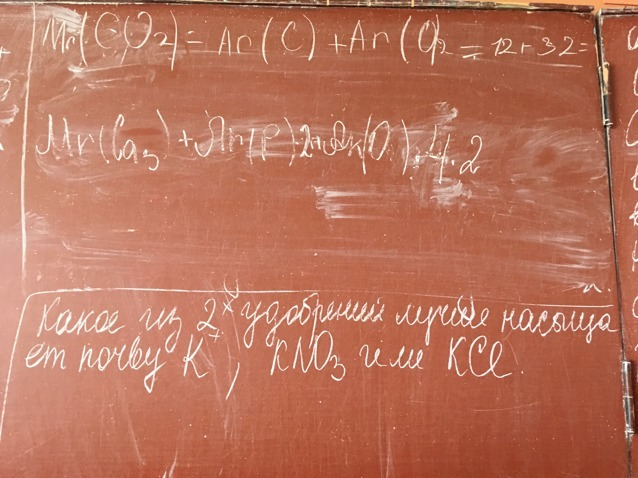 Mr(CO2) = Ar(C) + Ar(O)2 = 12 + 32 =
Mr(Ca3) + Ar(P)·2 + Ar(O)·4·2
Какое из 2х удобрений лучше насыща
ет почву K+, KNO3 или KCl.